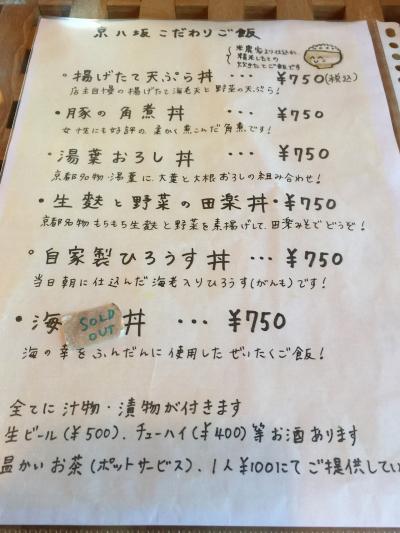 京八坂こだわりご飯
米農家より仕入れ
精米したての
炊きたてご飯です
・揚げたて天ぷら丼 … ¥750(税込)
店主自慢の揚げたて海老天と野菜の天ぷら!
・豚の角煮丼 … ¥750
女性にも好評の柔かく煮こんだ角煮です!
・湯葉おろし丼 … ¥750
京都名物・湯葉に大葉と大根おろしの組み合わせ!
・生麩と野菜の田楽丼・¥750
京都名物もちもち生麩と野菜を素揚げして、田楽みそでどうぞ!
・自家製ひろうす丼 … ¥750
当日朝に仕込んだ海老入りひろうす(がんも)です!
・海 SOLD OUT 丼 … ¥750
海の幸をふんだんに使用したぜいたくご飯!
全てに汁物・漬物が付きます
生ビール(¥500)、チューハイ(¥400)等お酒あります
温かいお茶(ポットサービス)、1人¥100にてご提供してい